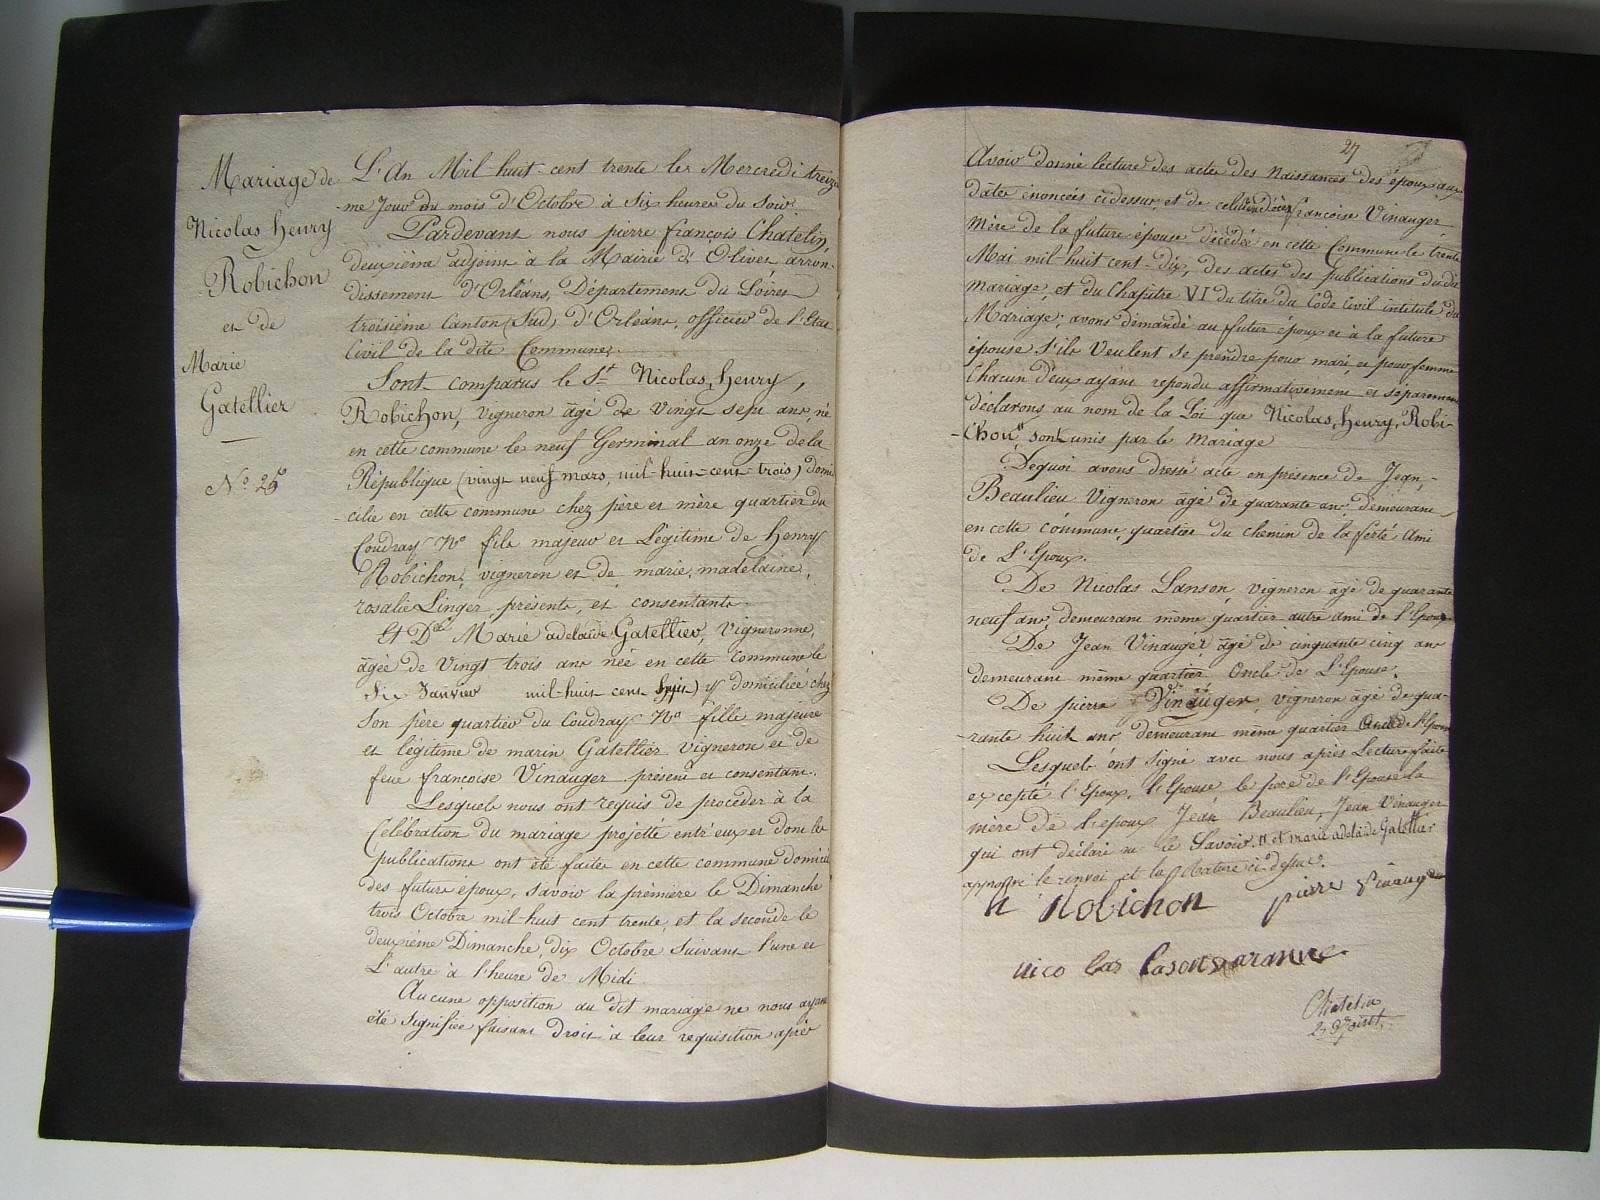 Mariage de
Nicolas henry
Robichon
et de
Marie
Gatellier
N.o 25
L'An Mil huit-cent trente le Mercredi treizi-
-me Jour du mois d'Octobre à Six heures du Soir
Pardevant nous pierre françois Chatelin,
deuxième adjoint à la Mairie d'Olivet arron-
dissement d'Orléans, Département du Loiret
troisième Canton (Sud) d'Orléans, officier de l'Etat
Civil de la dite Commune.
Sont comparus le St. Nicolas, henry,
Robichon, vigneron âgé de vingt sept ans, né
en cette commune le neuf Germinal an onze de la
République (vingt neuf mars, mil-huit-cent-trois) domi
-cilié en cette commune chez père et mère quartier du
Coudray No fils majeur et Légitime de henry
Robichon, vigneron et de marie, madelaine,
rosalie Linger, présents, et consentants.
Et Dlle Marie adelaïde Gatellier, Vigneronne,
âgée de Vingt trois ans née en cette commune le
Six Janvier mil-huit cent sept) domiciliée chez
Son père quartier du Coudray No fille majeure
et légitime de marin Gatellier vigneron et de
feue françoise Vinauger présent et consentant.
Lesquels nous ont requis de procéder à la
Célébration du mariage projetté entr'eux et dont les
publications ont été faites en cette commune domicile
des futurs époux, savoir la première le Dimanche
trois Octobre mil-huit cent trente, et la seconde le
deuxième Dimanche, dix Octobre Suivant l'une et
L'autre à l'heure de Midi
Aucune opposition au dit mariage ne nous ayant
été signifiée faisant droit à leur requisition après
27
Avoir donné lecture des actes des Naissances des époux aux
dates énoncées cidessus, et de celui du décès françoise Vinauger
Mère de la future épouse décédée en cette Commune le trente
Mai mil huit cent-dix, des actes des publications du dit
mariage, et du Chapitre VI du titre du Code Civil intitulé du
Mariage; avons demandé au futur époux et à la future
épouse S'ils Veulent se prendre pour mari et pour femme
Chacun d'eux ayant repondu affirmativement et séparement
déclarons au nom de la Loi que Nicolas, henry, Robi-
-chon" sont unis par le mariage
Dequoi avons dressé acte en présence de Jean,
Beaulieu Vigneron âgé de quarante ans demeurant
en cette commune, quartier du chemin de la ferté Ami
de L'Epoux.
De Nicolas Lanson, vigneron âgé de quarante
neuf ans, demeurant même quartier autre ami de l'Epoux
De Jean Vinauger âgé de cinquante cinq ans
demeurant même quartier Oncle de L'Epouse.
De pierre Vinauger vigneron âgé de qua-
-rante huit ans demeurant même quartier Oncle de l'Epouse
Lesquels ont Signé avec nous après Lecture faite
excepté l'Epoux, l'Epouse le père de l'Epouse la
mère de l'époux Jean Beaulieu, Jean Vinauger
qui ont déclaré ne le Savoir. " et marie adelaïde Gatellier
approuvé le renvoi et la ci-dessus.
h Robichon
pierre vinauger
nico las
Chatelin